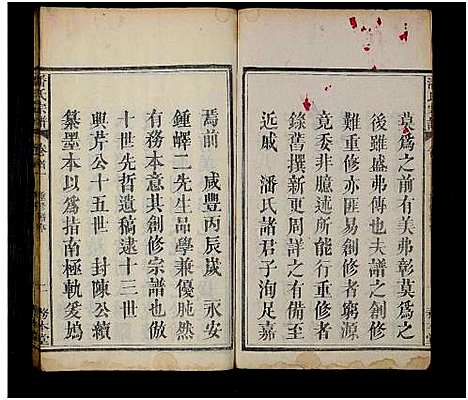 莫爲之前有美弗彰莫爲之
後雖盛弗傳也夫譜之創修
難重修亦匪易創修者窮源
竟委非臆述所能行重修者
錄舊撰新更周詳之有備至
近戚　潘氏諸君子洵足嘉
焉前　咸豐丙辰歲　永安
鍾嶧二先生品學兼優肫然
有務本意其創修宗譜也倣
十世先哲遺稿逮十三世
興芹公十五世　封陳公續
纂墨本以爲指南極軌爰塢
潘氏宗譜
卷首
一
務本堂